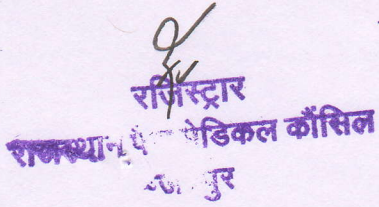 रजिस्ट्रार
राजस्थान पैरा मेडिकल कौंसिल
जयपुर